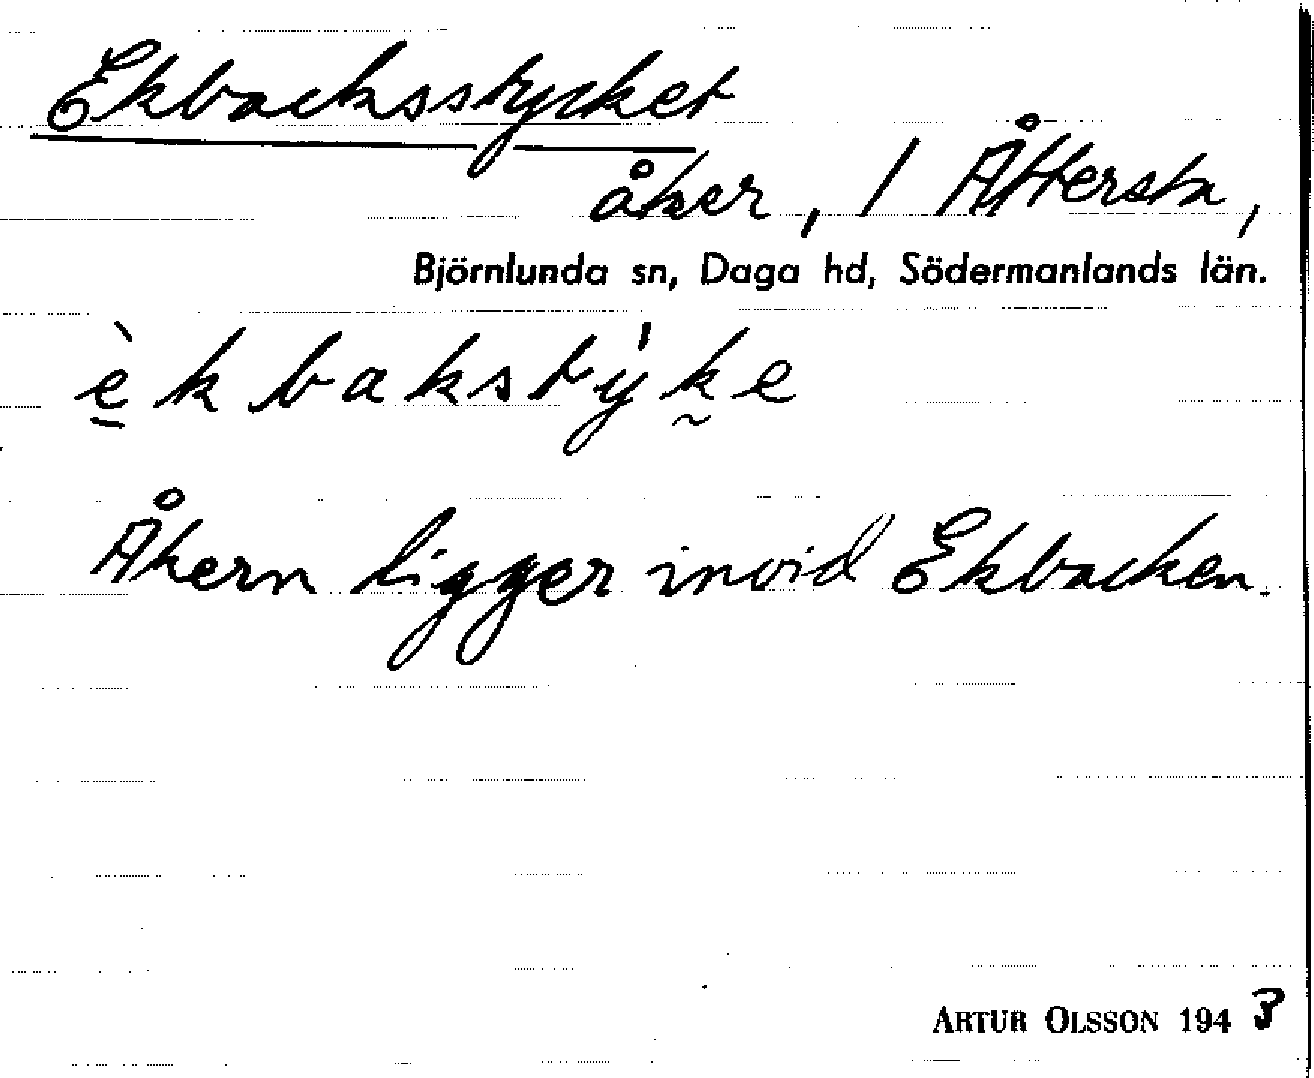 Ekbacksstycket
åker, / Åttersta,
Björnlunda sn, Daga hd, Södermanlands län.
è̱kbakstýk̰e
Åkern ligger invid Ekbacken.
ARTUR OLSSON 1943